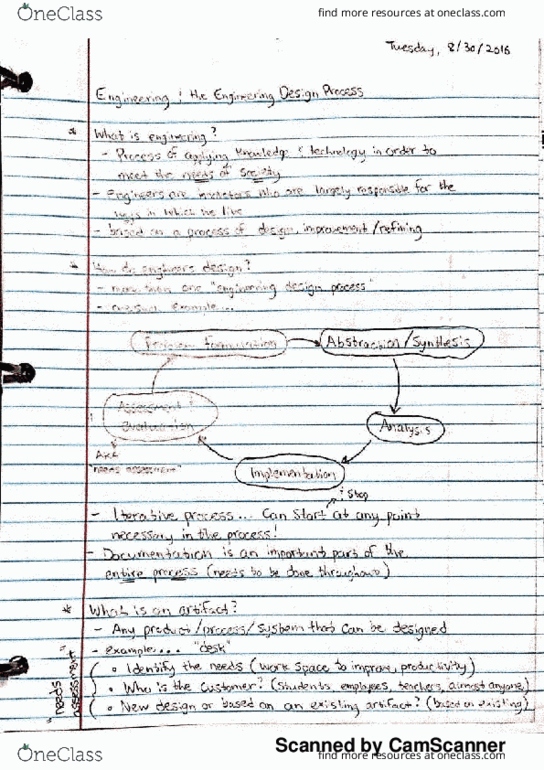 OneClass
find more resources at oneclass.com
Tuesday, 8/30/2016
Engineering & the Engineering Design Process
* What is engineering?
- Process of applying knowledge & technology in order to
meet the needs of society
- Engineers are who are largely responsible for the
ways in which we live
- based on a process of design, improvement/refining
* How do engineers design?
- more than one "engineering design process"
- example...
Problem formulation
Abstraction/Synthesis
Assessment &
Evaluation
Analysis
AKA
"needs assessment"
Implementation
& Stop
- Iterative process... Can start at any point
necessary in the process!
- Documentation is an important part of the
entire process (needs to be done throughout)
* What is an artifact?
- Any product/process/system that can be designed
- example.... "desk"
needs assessment
( • Identify the needs (work space to improve productivity)
( • Who is the customer? (students, employees, teachers, almost anyone)
( • New design or based on an existing artifact? (based on existing)
Scanned by CamScanner
OneClass
find more resources at oneclass.com